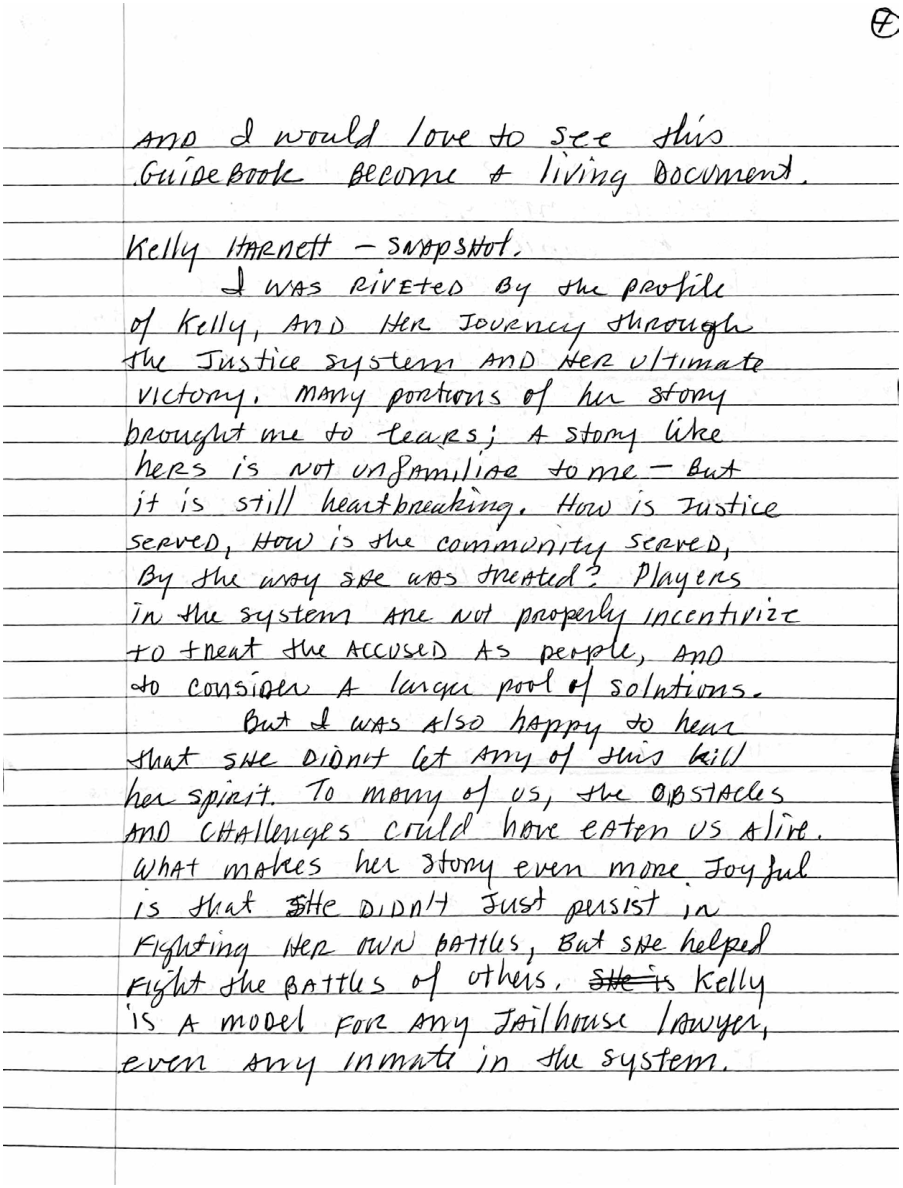 7
AND I would love to see this
GuideBook Become A living Document.
Kelly HARnett – SNAPSHOT.
I WAS RIVETED By the profile
of Kelly, AND HER Journey through
the Justice system AND HER ultimate
victory. MANY portions of her story
brought me to tears; A story like
hers is NOT unfamiliar to me – But
it is still heartbreaking. How is Justice
served, How is the community served,
By the way she was treated? Players
in the system are NOT properly incentivize
to treat the ACCUSED AS people, AND
to consider A larger pool of solutions.
But I WAS Also happy to hear
that SHE DIDN't let Any of this kill
her spirit. To many of us, the OBSTACLES
AND CHAllENgES could have EATEN US Alive.
What makes her story even more Joyful
is that SHE DIDN't Just persist in
Fighting HER OWN BATTLES, But SHE helped
Fight the BATTLES of others. She is Kelly
is A model FOR Any JAilhouse lAwyer,
even Any inmate in the system.